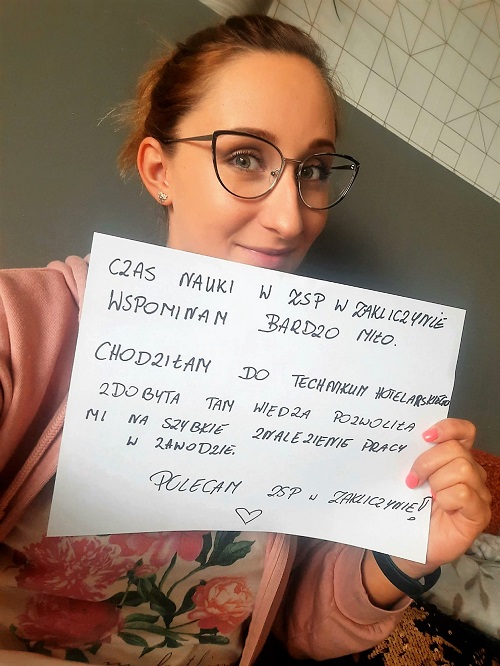 CZAS NAUKI W ZSP W ZAKLICZYNIE
WSPOMINAM BARDZO MIŁO.
CHODZIŁAM DO TECHNIKUM HOTELARSKIEGO
ZDOBYTA TAM WIEDZA POZWOLIŁA
MI NA SZYBKIE ZNALEZIENIE PRACY
W ZAWODZIE.
POLECAM ZSP W ZAKLICZYNIE!